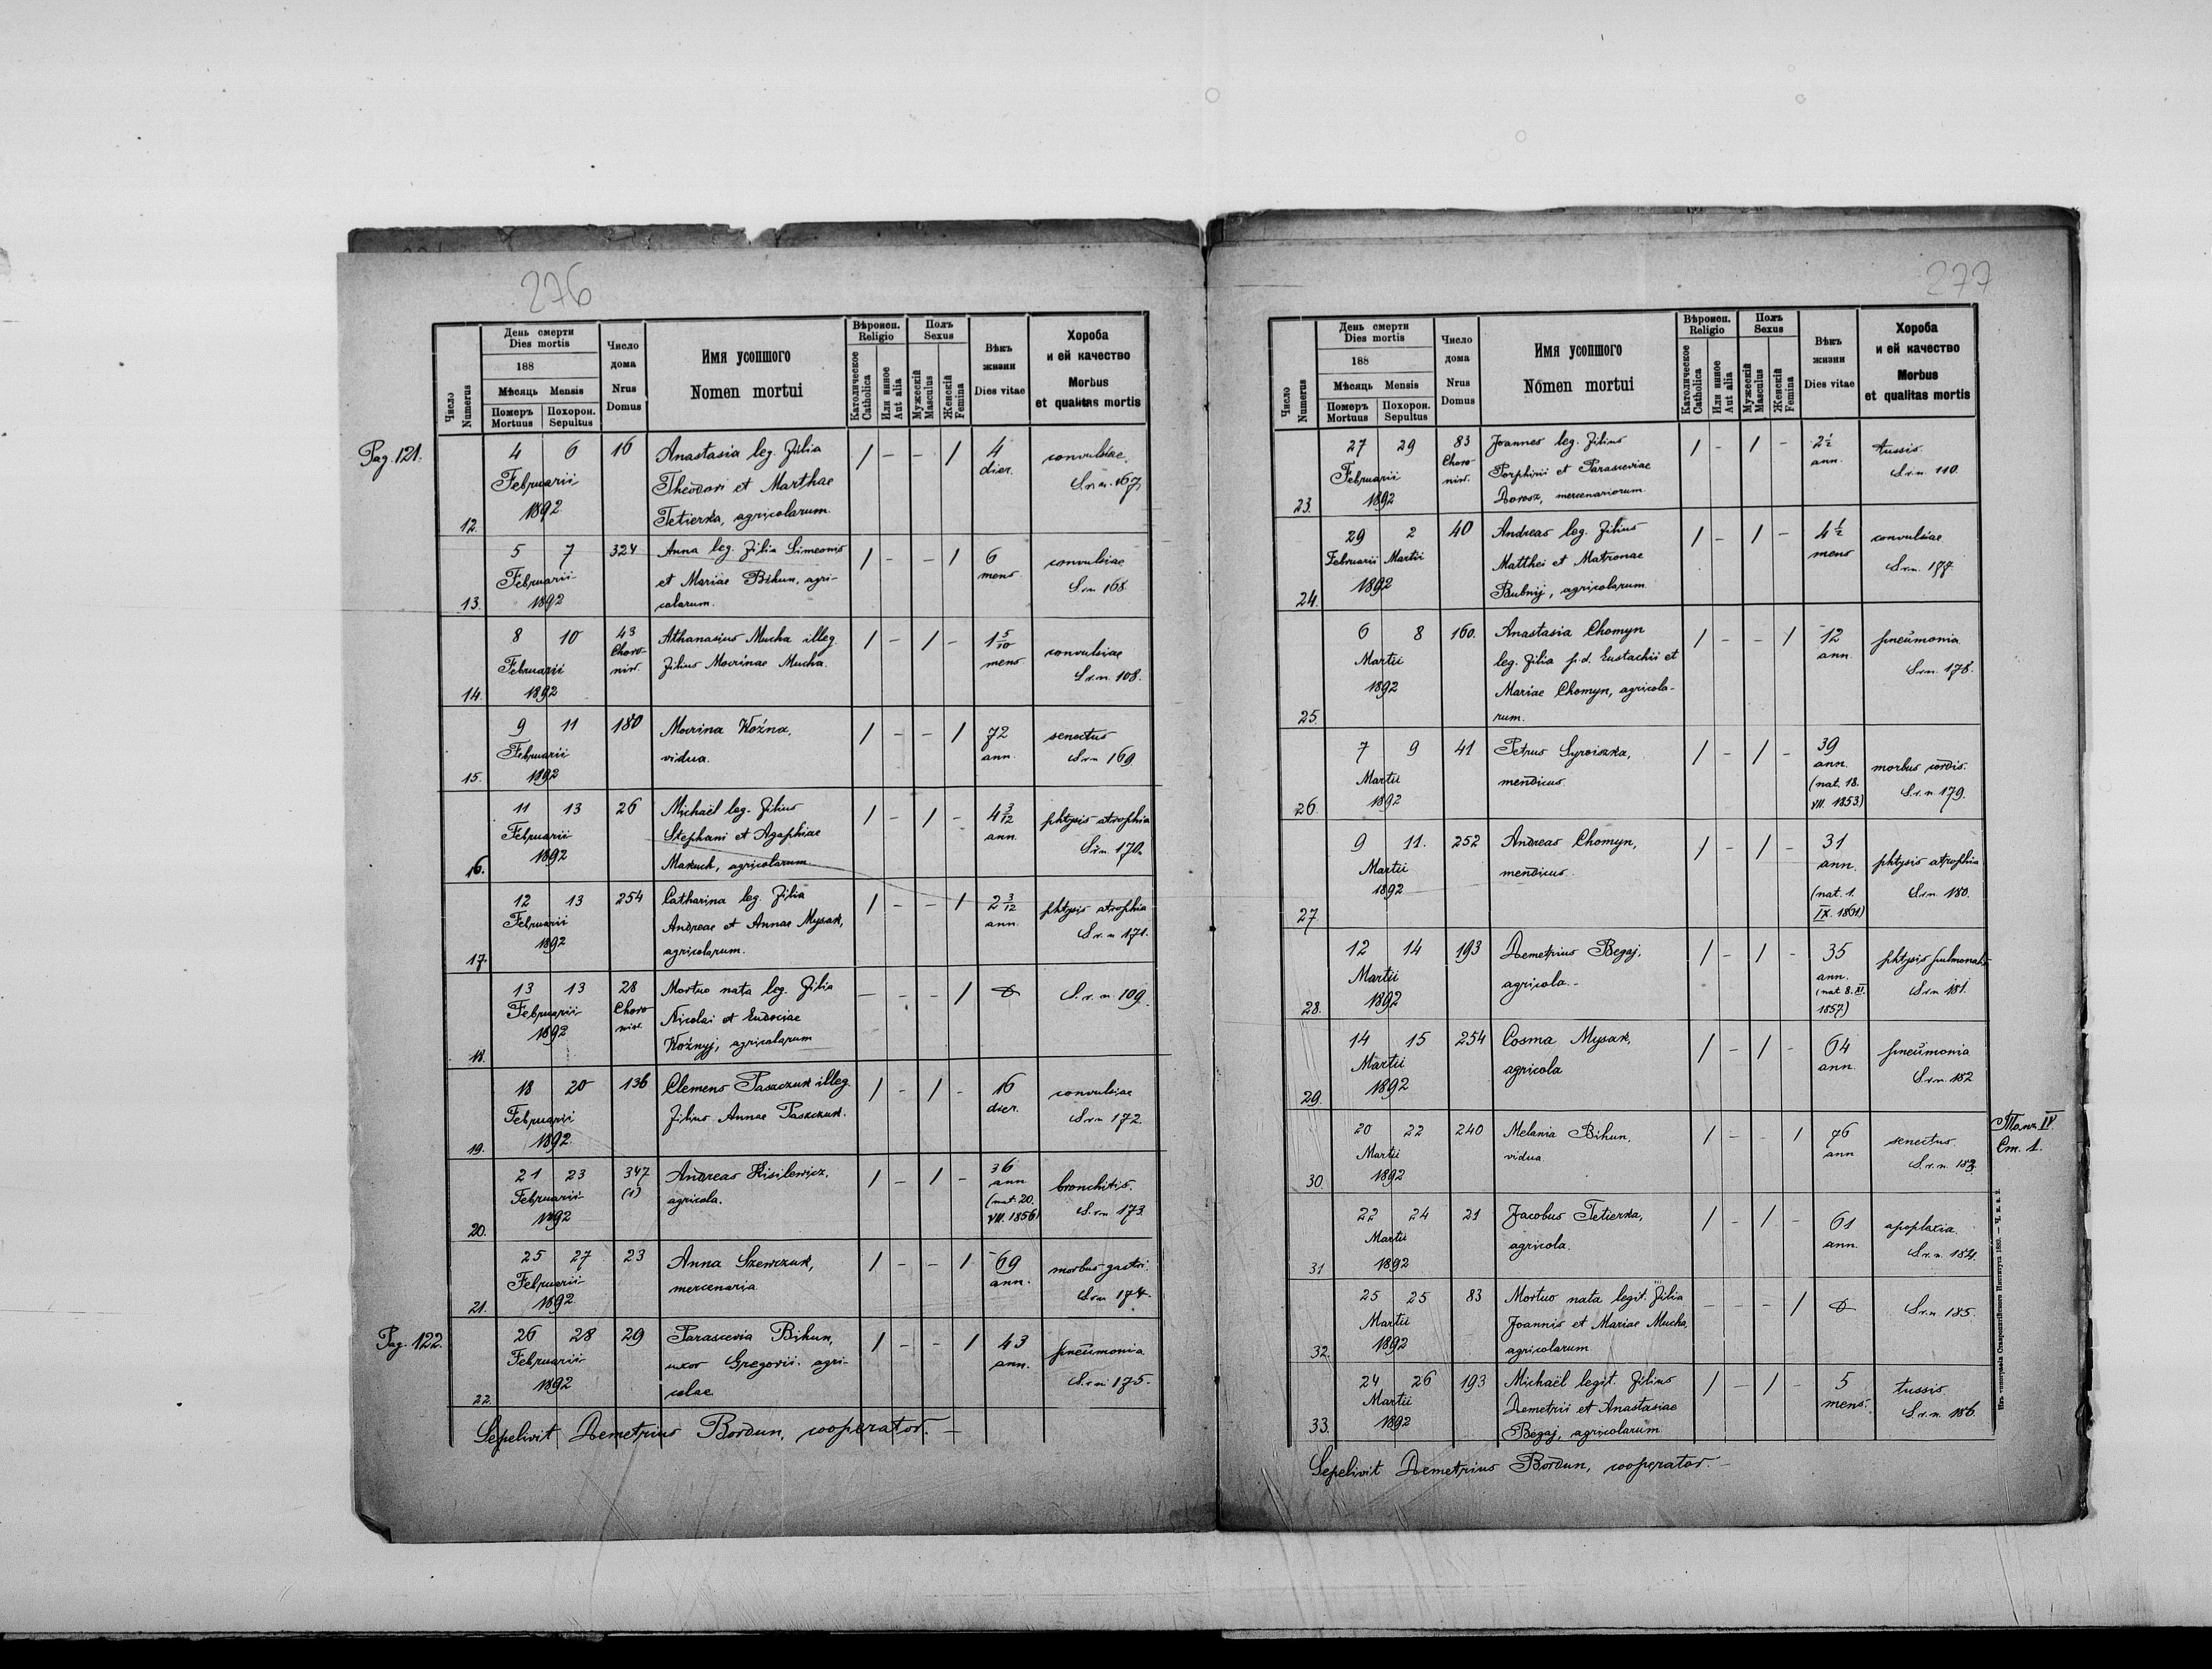 276
Число
Numerus
День смерти
Dies mortis
188
Мѣсяць Mensis
Померъ Похорон.
Mortuus Sepultus
Число
дома
Nrus
Domus
Имя усопшого
Nomen mortui
Вѣроисп.
Religio
Католическое
Catholica
Или инное
Aut alia
Полъ
Sexus
Мужескій
Masculus
Женскій
Femina
Вѣкъ
жизни
Dies vitae
Хороба
и ей качество
Morbus
et qualitas mortis
Pag. 121.
12. 4 6 16 Anastasia leg. filia / - - / 4 convulsiae.
Februarii Theodori et Marthae dier. S.r.n. 167.
1892 Tetierka, agricolarum.
13. 5 7 324 Anna leg. filia Simeonis / - - / 6 convulsiae
Februarii et Mariae Bihun, agri- mens. S.r.n. 168.
1892 colarum.
14. 8 10 43 Athanasius Mucha illeg. / - / - 1 5/10 convulsiae
Februarii Choro- filius Mavrinae Mucha. mens S.r.n. 108.
1892 niw.
15. 9 11 180 Mavrina Koźna, / - - / 72 senectus
Februarii vidua. ann. S.r.n. 169.
1892
16. 11 13 26 Michaël leg. filius / - / - 4 3/12 phtysis atrophia
Februarii Stephani et Agaphiae ann. S.r.n. 170.
1892 Makuch, agricolarum.
17. 12 13 254 Catharina leg. filia / - - / 2 3/12 phtysis atrophia
Februarii Andreae et Annae Mysak, ann. S.r.n. 171.
1892 agricolarum.
18. 13 13 28 Mortuo nata leg. filia - - - / S.r.n. 109.
Februarii Choro- Nicolai et Eudociae
1892 niw. Koźnyj, agricolarum
19. 18 20 136 Clemens Paszczuk illeg. / - / - 16 convulsiae
Februarii filius Annae Paszczuk. dier. S.r.n. 172.
1892.
20. 21 23 347 Andreas Kisilewicz, / - / - 36 bronchitis.
Februarii (1) agricola. ann S.r.n. 173.
1892 (nat. 20.
VIII. 1856)
21. 25 27 23 Anna Szewczuk, / - - / 69 morbus gastri.
Februarii mercenaria ann. S.r.n. 174.
1892
Pag. 122.
22. 26 28 29 Parascevia Bihun, / - - / 43 pneumonia
Februarii uxor Gregorii. agri- ann. S.r.n. 175.
1892 colae
Sepelivit Demetrius Bordun, cooperator. -
277
Число
Numerus
День смерти
Dies mortis
188
Мѣсяць Mensis
Померъ Похорон.
Mortuus Sepultus
Число
дома
Nrus
Domus
Имя усопшого
Nomen mortui
Вѣроисп.
Religio
Католическое
Catholica
Или инное
Aut alia
Полъ
Sexus
Мужескій
Masculus
Женскій
Femina
Вѣкъ
жизни
Dies vitae
Хороба
и ей качество
Morbus
et qualitas mortis
23. 27 29 83 Joannes leg. filius / - / - 2 1/2 tussis.
Februarii Choro- Porphirii et Parasceviae ann. S.r.n. 110.
1892 niw. Dorosz, mercenariorum.
24. 29 2 40 Andreas leg. filius / - / - 4 1/2 convulsiae
Februarii Martii Matthei et Matronae mens S.r.n. 177.
1892 Bubnij, agricolarum.
25 6 8 160. Anastasia Chomyn / - - / 12 pneumonia
Martii leg. filia p.d. Eustachii et ann. S.r.n. 178.
1892 Mariae Chomyn, agricola-
rum.
26. 7 9 41 Petrus Syroiszka, / - / - 39 morbus cordis.
Martii mendicus. ann. S.r.n. 179.
1892 (nat. 18.
VII. 1853)
27. 9 11. 252 Andreas Chomyn, / - / - 31 phtysis atrophia
Martii mendicus. ann. S.r.n. 180.
1892 (nat. 1.
IX. 1861)
28. 12 14 193 Demetrius Begaj, / - / - 35 phtysis pulmonalis
Martii agricola.- ann. S.r.n. 181.
1892 (nat. 8. XI.
1857)
29. 14 15 254 Cosma Mysak, / - / - 64 pneumonia
Martii agricola ann. S.r.n. 182
1892
30. 20 22 240 Melania Bihun, / - - / 76 senectus.
Martii vidua. ann S.r.n. 183.
1892
Cm. 1.
31 22 24 21 Jacobus Tetierka, / - / - 61 apoplexia.
Martii agricola. ann. S.r.n. 184.
1892
32. 25 25 83 Mortuo nata legit. filia - - - / S.r.n. 185.
Martii Joannis et Mariae Mucha,
1892 agricolarum
33. 24 26 193 Michaël legit. filius / - / - 5 tussis.
Martii Demetrii et Anastasiae mens. S.r.n. 186.
1892 Begaj, agricolarum
Sepelivit Demetrius Bordun, cooperator. -
Изъ типографіи Ставропигійского Института 1889.